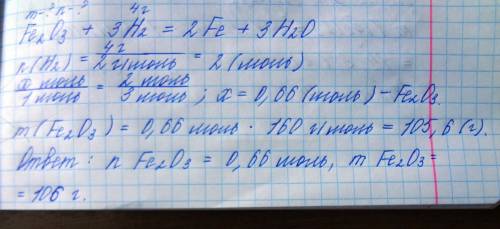 m-? n-? 4г
Fe₂O₃ + 3H₂ = 2Fe + 3H₂O
n(H₂) = 4г / 2 г/моль = 2 (моль)
x моль / 1 моль = 2 моль / 3 моль ; x = 0,66 (моль) – Fe₂O₃.
m(Fe₂O₃) = 0,66 моль · 160 г/моль = 105,6 (г).
Ответ : n Fe₂O₃ = 0,66 моль, m Fe₂O₃ =
= 106 г.